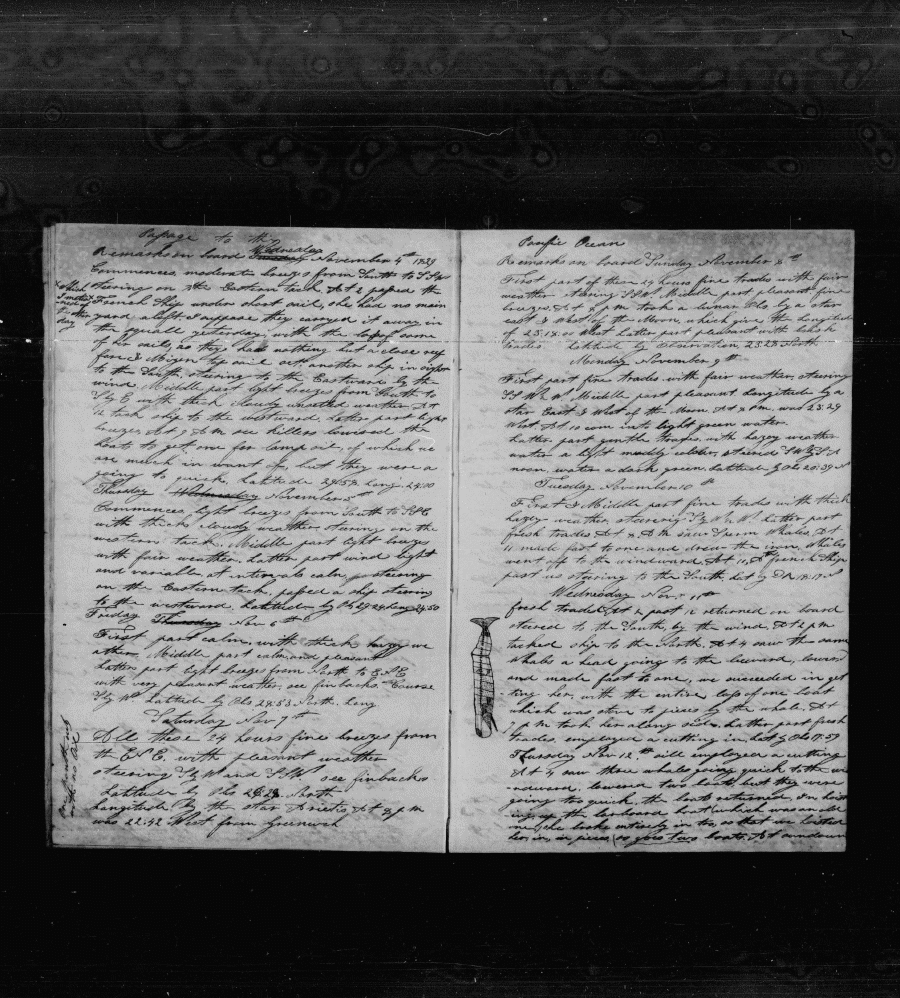 Passage to the
Remarks on board Tuesday Wednesday November 4th 1829
Commences moderate breezes from South to SSW
steering on the Eastern tack At 2 passed the
French Ship under short sail, she had no main
yard aloft I suppose they carried it away in
the squall yesterday, with the loss of some
of her sails, as they had nothing but a close reef
fore & Mizen top sail set, another ship in sight
to the South, steering to the Eastward by the
wind. Middle part light breezes from South to
S by E with thick cloudy weather At
tack ship to the westward. Latter part light
breezes At 7 AM see killers lowered the
boats to get one for lamp oil, of which we
are much in want of, but they were a
going to quick. Latitude 29:59 Long. 24:00
Thursday Wednesday November 5th
Commences light breezes from South to SSE
with thick cloudy weather steering on the
western tack. Middle part light breezes
with fair weather. Latter part wind light
and variable at intervals calm, steering
on the Eastern tack, passed a ship steering
to the westward. Latitude by Obs 29:24 Long 24:50
Friday Thursday Nov 6th
First part calm, with thick hazy we
ather, Middle part calm and pleasant
Latter part light breezes from North to ENE
with very pleasant weather, see finbacks. Course
S by W. Latitude by Obs 28:53 North. Long
Saturday Nov 7th
All these 24 hours fine breezes from
the ENE. with pleasant weather
steering S by W and SSW see finbacks
Latitude by Obs North
Longitude By the star Arietis At 8 pm
was 22:42 West from Greenwich
Pacific Ocean
Remarks on board Sunday November 8th
First part of these 24 hours fine trades with fair
weather steering SSW Middle part pleasant fine
breezes, At 9 pm took a Lunar Obs by a star
east & West of the Moon, which give the Longitude
of 23:18:00 West Latter part pleasant with brisk
trades. Latitude by observation 23:28 North
Monday November 9th
First part fine trades with fair weather, steering
Middle part pleasant Longitude by a
star East & West of the Moon At 8 pm was 23:29
West At 10 com into light green water.
Latter part gentle trades, with hazey weather
water a light muddy color, steering SW by S At
noon, water a dark green, Latitude by Obs 20:39 N
Tuesday November 10th
First & Middle part fine trades with thick
hazey weather, steering S by W. Latter part
fresh trades At 8 AM saw Sperm Whales, At
11 made fast to one and drew the iron, Whales
went off to the windward. At 11 French Ship
past us steering to the South. Lat by DR 18:17 N
Wednesday Nov 11th
fresh trades, At ½ past 12 returned on board
steered to the South by the wind, At 2 pm
tacked ship to the North, At 4 saw the same
whales a head going to the leeward, lowered
and made fast to one, we succeeded in get
ting her, with the entire loss of one boat
which was stove to pieces by the whale. At
7 pm took her along side. Latter part fresh
trades, employed a cutting in, Lat by Obs 17:57
Thursday Nov 12th still employed a cutting
At 4 saw those whales going quick to the wi
ndward. lowered two boats but they were
going too quick, the boats returned, In hoist
ing up the larboard boat which was
she broke entirely in two, so that we hoisted
her in, in pieces, so goes two boats. At sundown